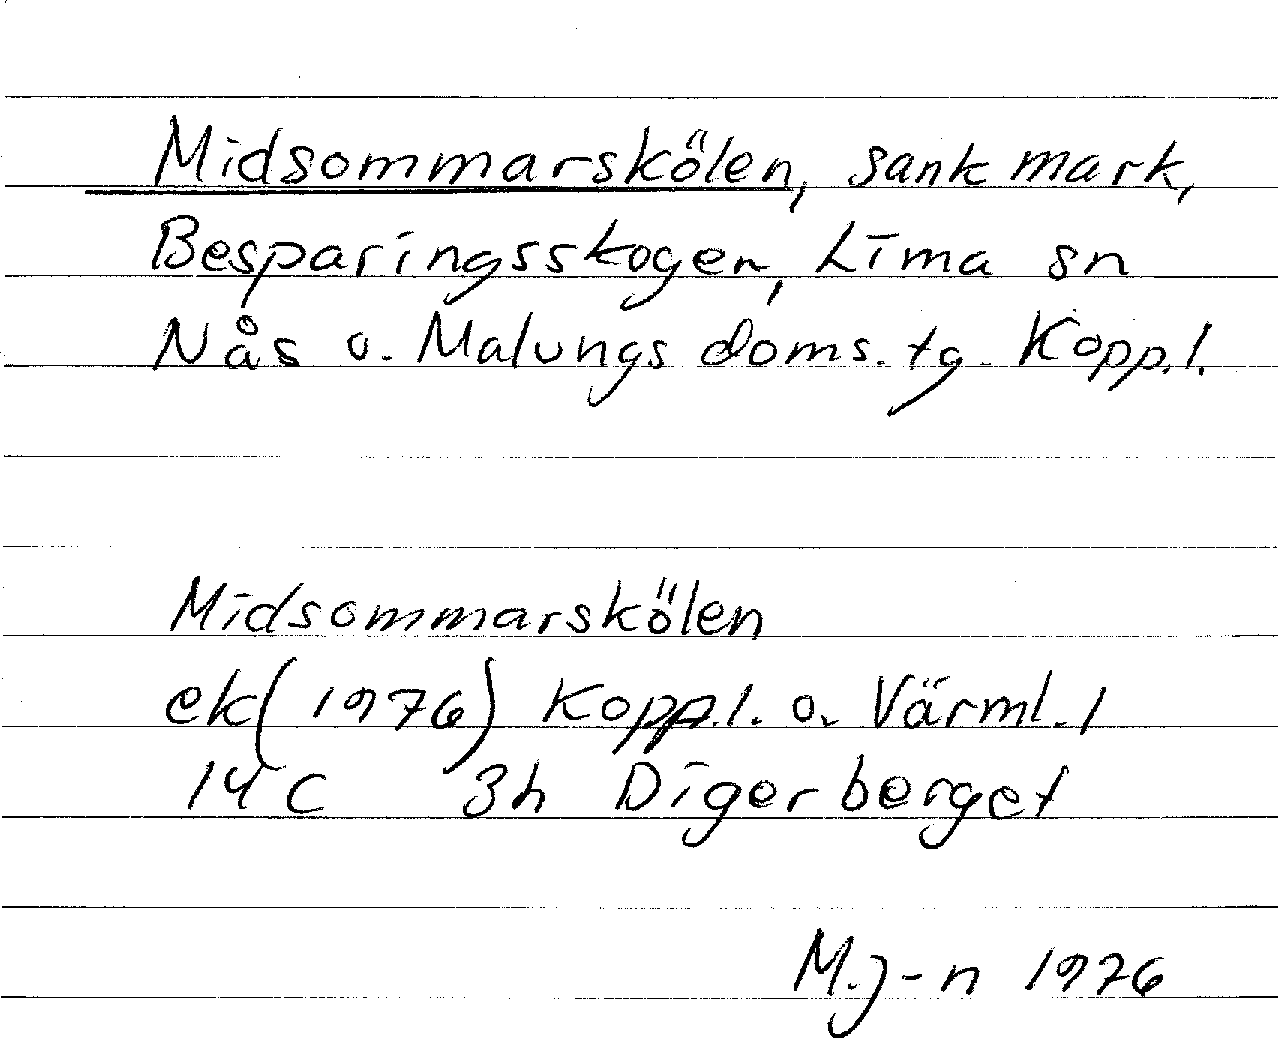 Midsommarskölen, sank mark,
Besparingsskogen, Lima sn
Nås o. Malungs doms. tg. Kopp.l.
Midsommarskölen
ek(1976) Kopp.l. o. Värml. l
14 C 3h Digerberget
M.J-n 1976